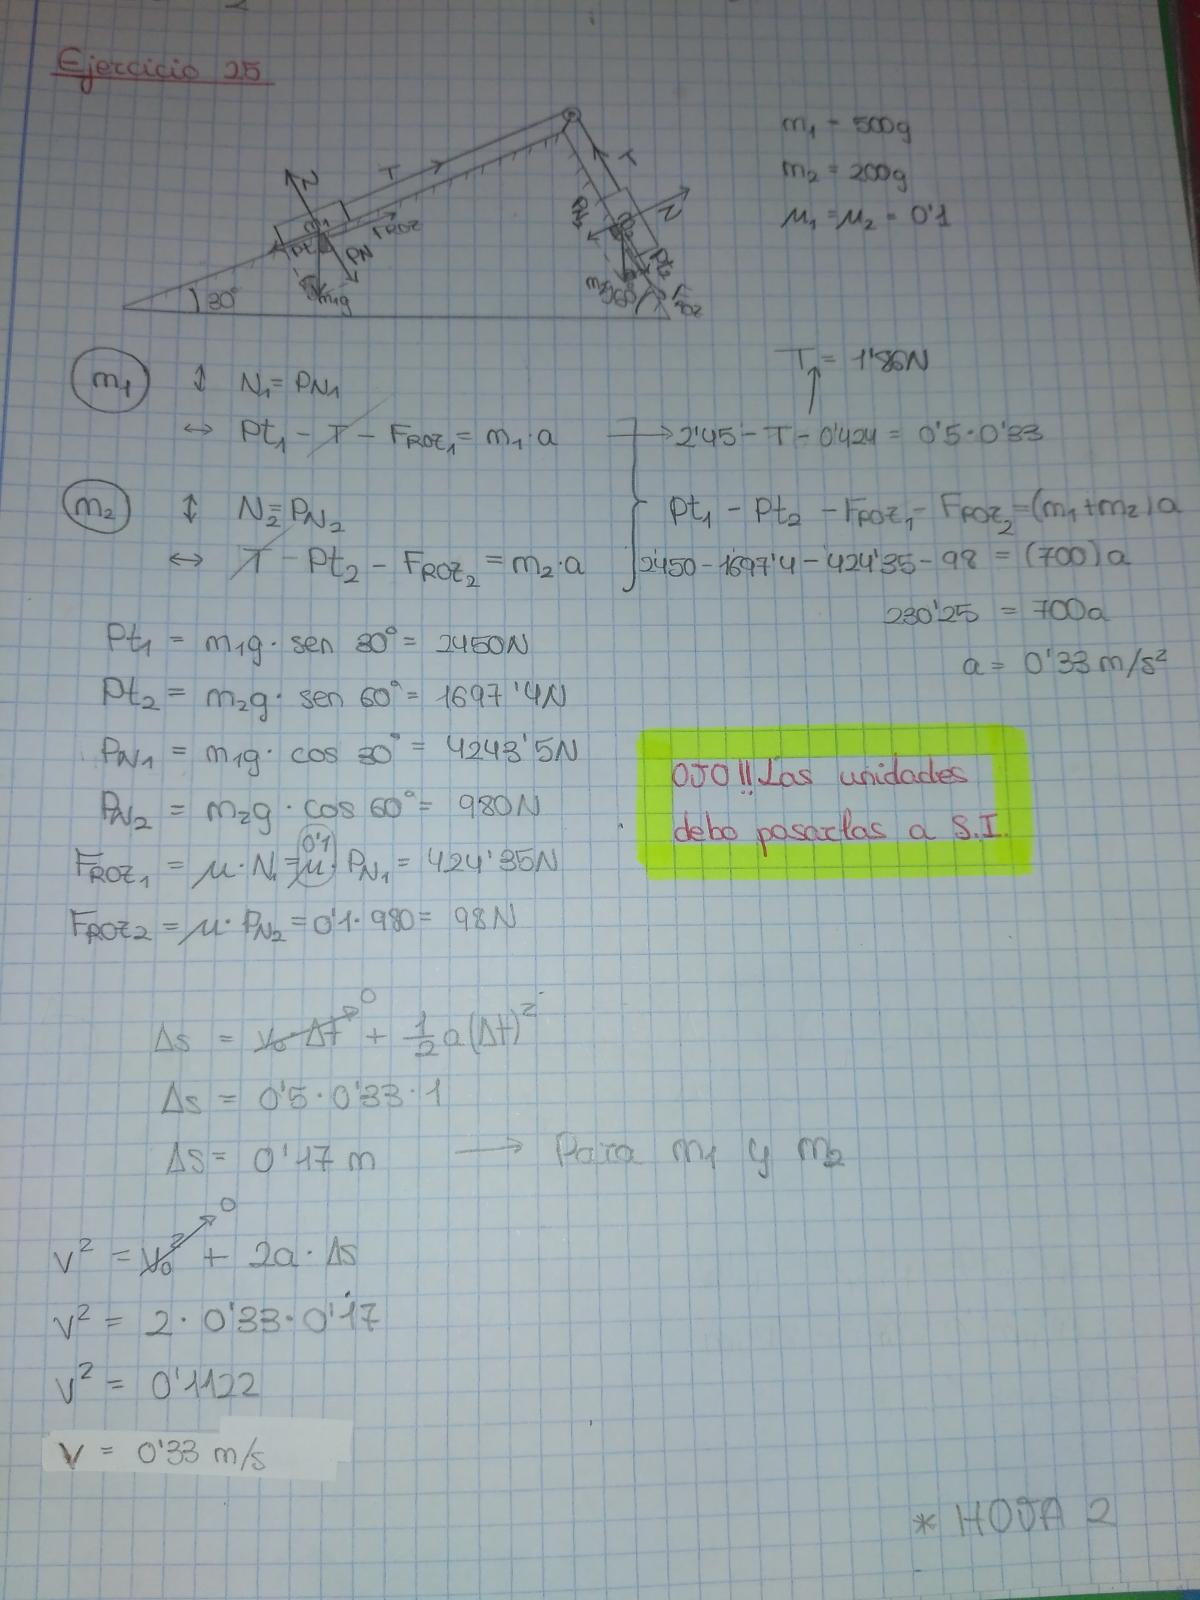 Ejercicio 25
m₁ = 500g
m₂ = 200g
μ₁ = μ₂ = 0'1
N T
N T
Pt PN FROZ
m₁g
30°
PN₂ Pt₂
m₂g 60° FROZ
T = 1'86N
m₁ ↕ N₁ = PN₁
↔ Pt₁ - T - FROZ₁ = m₁·a → 2'45 - T - 0'424 = 0'5·0'33
m₂ ↕ N₂ = PN₂
Pt₁ - Pt₂ - FROZ₁ - FROZ₂ = (m₁+m₂)a
↔ T - Pt₂ - FROZ₂ = m₂·a
2450 - 1697'4 - 424'35 - 98 = (700)a
230'25 = 700a
a = 0'33 m/s²
Pt₁ = m₁g · sen 30° = 2450N
Pt₂ = m₂g · sen 60° = 1697'4N
PN₁ = m₁g · cos 30° = 4243'5N
PN₂ = m₂g · cos 60° = 980N
0'1
FROZ₁ = μ·N₁ = μ· PN₁ = 424'35N
FROZ₂ = μ· PN₂ = 0'1·980 = 98N
OJO!! Las unidades
debo pasarlas a S.I.
Δs = v₀·Δt → 0 + 1/2 a(Δt)²
Δs = 0'5·0'33·1
Δs = 0'17 m → Para m₁ y m₂
v² = v₀² → 0 + 2a·Δs
v² = 2·0'33·0'17
v² = 0'1122
v = 0'33 m/s
* HOJA 2